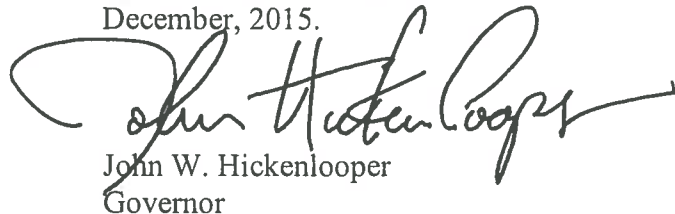 December, 2015.
John Hickenlooper
John W. Hickenlooper
Governor